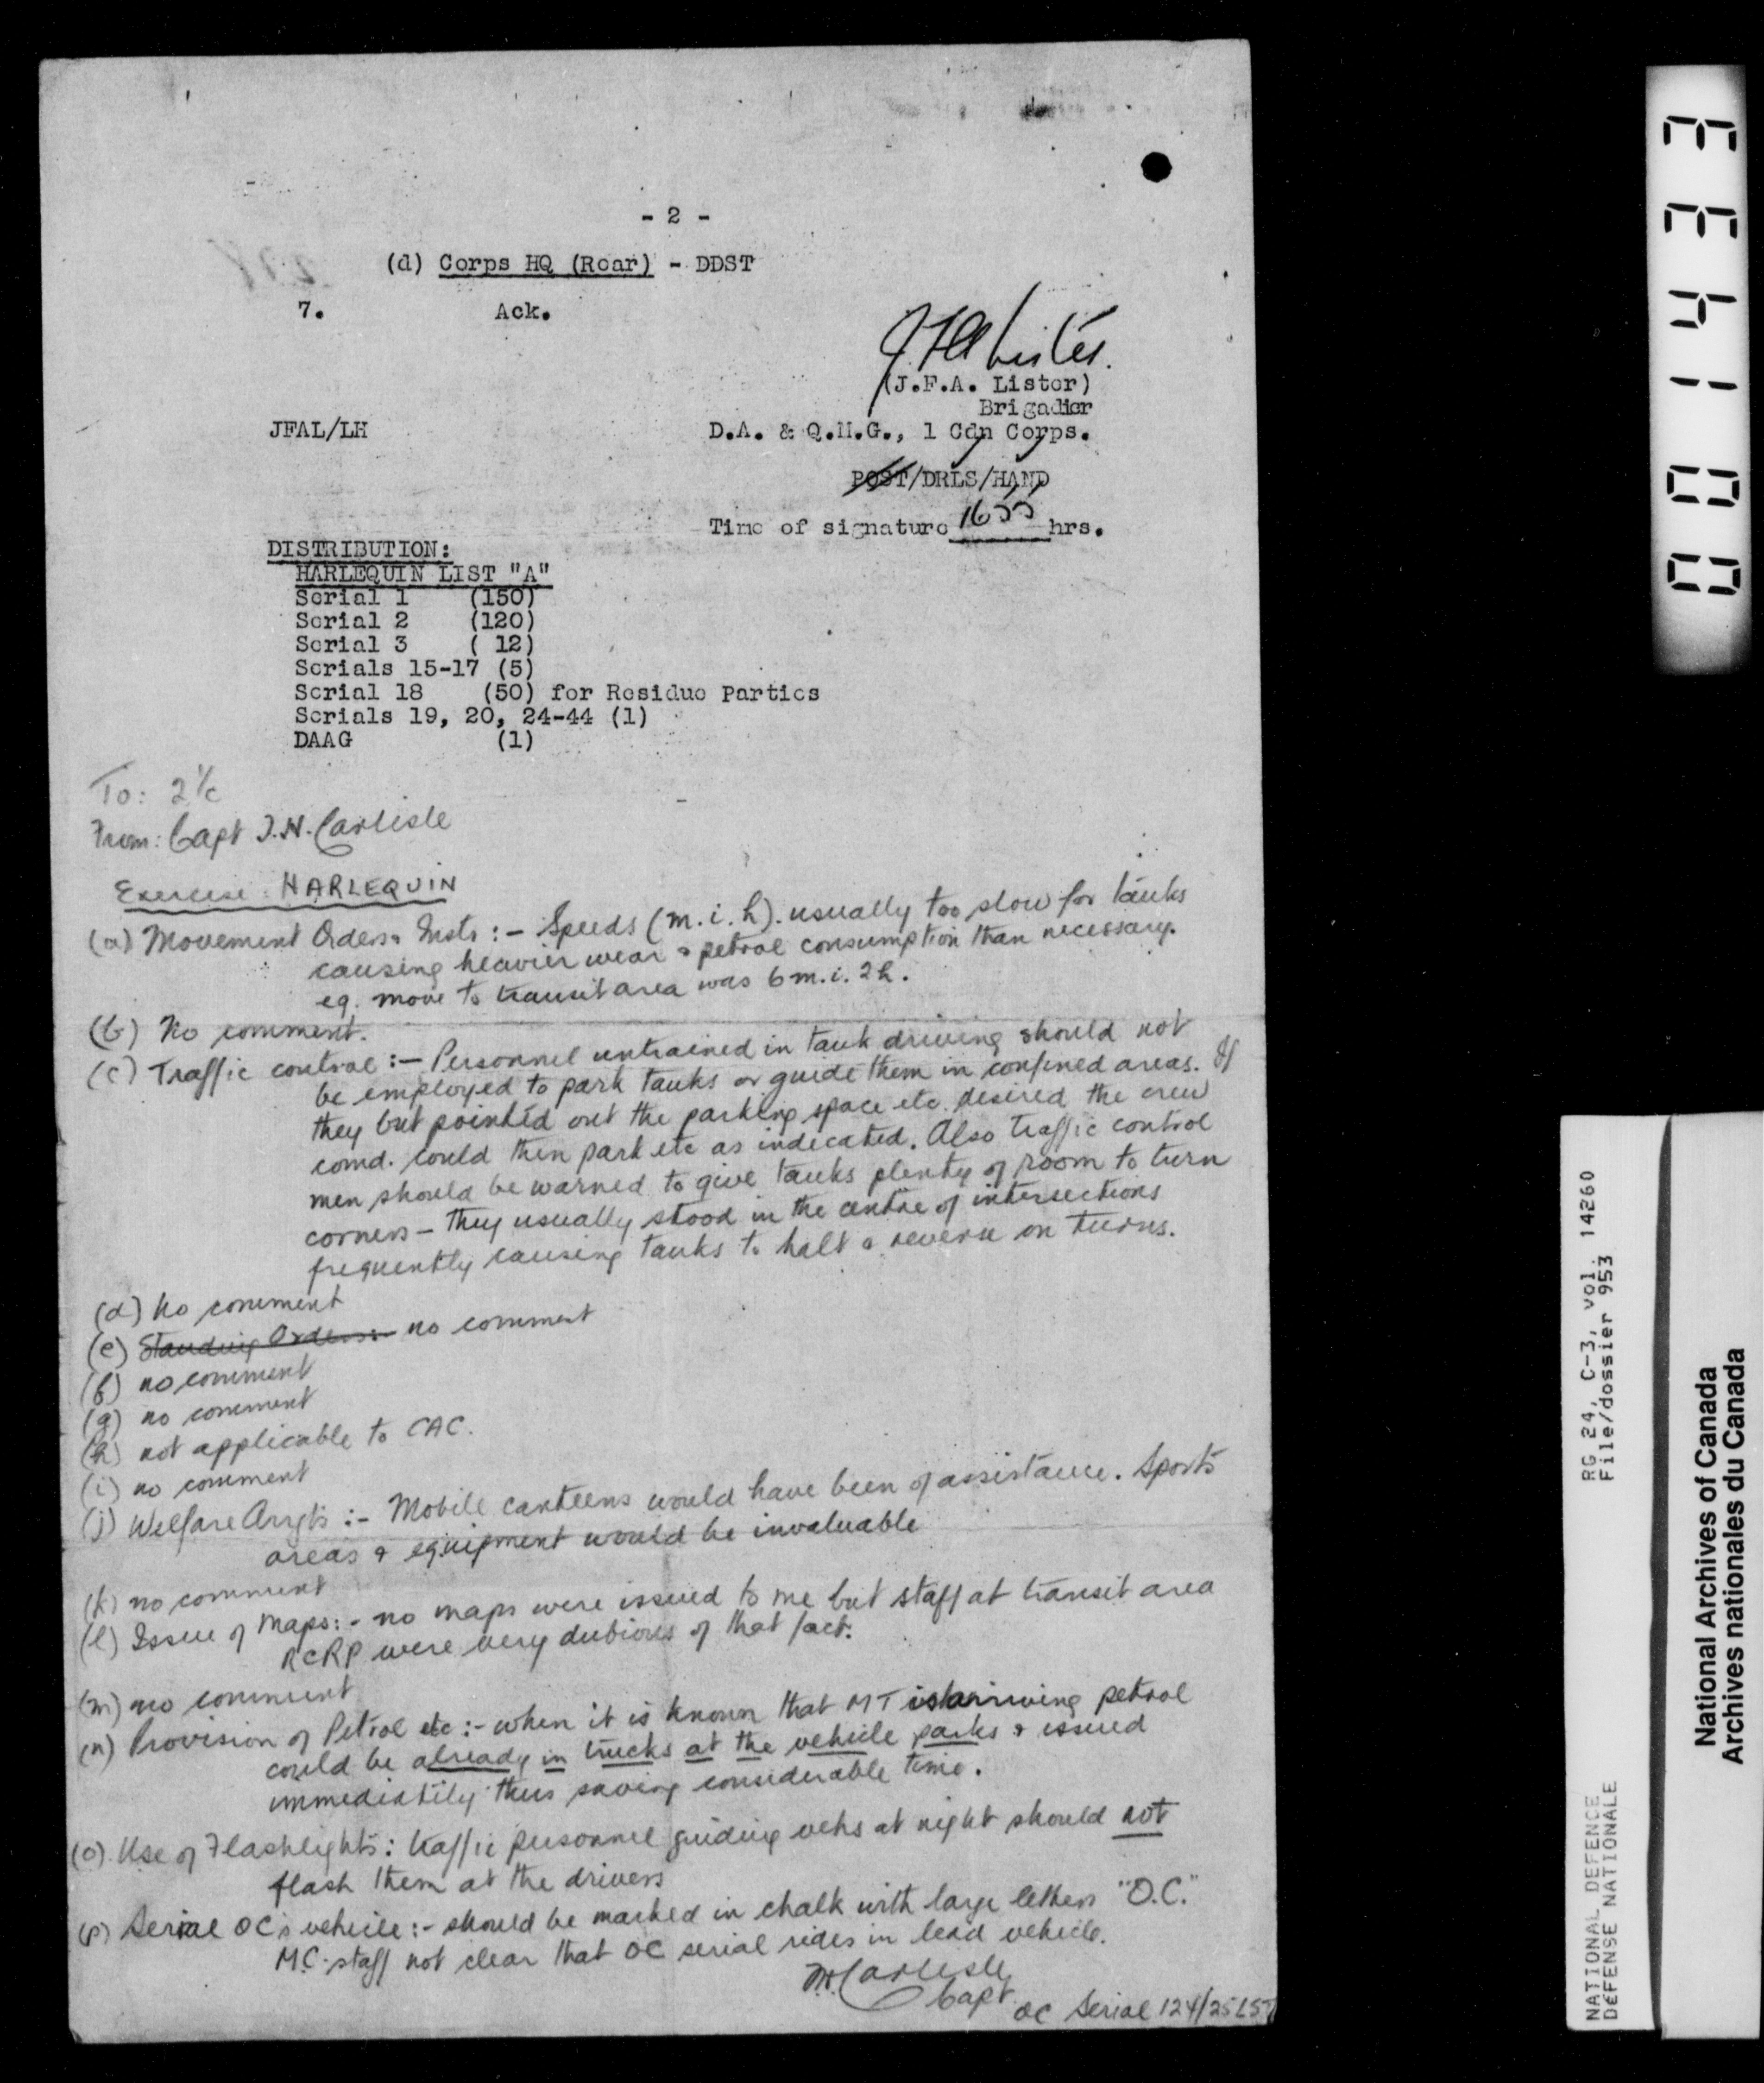 - 2 -
(d) Corps HQ (Rear) - DDST
7. Ack.
J F A Lister.
(J.F.A. Lister)
Brigadier
JFAL/LH D.A. & Q.M.G., 1 Cdn Corps.
POST/DRLS/HAND
Time of signature 1655 hrs.
DISTRIBUTION:
HARLEQUIN LIST "A"
Serial 1 (150)
Serial 2 (120)
Serial 3 ( 12)
Serials 15-17 (5)
Serial 18 (50) for Residue Parties
Serials 19, 20, 24-44 (1)
DAAG (1)
To: 2 i/c
From: Capt J.H. Carlisle
Exercise HARLEQUIN
(a) Movement Orders & Insts :- Speeds (m.i.h). usually too slow for tanks
causing heavier wear & petrol consumption than necessary.
eg. move to transit area was 6 m.i. 2 h.
(b) No comment.
(c) Traffic control :- Personnel untrained in tank driving should not
be employed to park tanks or guide them in confined areas. If
they but pointed out the parking space etc. desired the crew
comd. could then park etc as indicated. Also traffic control
men should be warned to give tanks plenty of room to turn
corners - they usually stood in the centre of intersections
frequently causing tanks to halt & reverse on turns.
(d) No comment
(e) Standing Orders:- no comment
(f) no comment
(g) no comment
(h) not applicable to CAC.
(i) no comment
(j) Welfare Arrgts :- Mobile canteens would have been of assistance. Sports
areas & equipment would be invaluable
(k) no comment
(l) Issue of Maps:- no maps were issued to me but staff at transit area
RCRP were very dubious of that fact.
(m) no comment
(n) Provision of Petrol etc :- when it is known that MT is arriving petrol
could be already in trucks at the vehicle parks & issued
immediately thus saving considerable time.
(o) Use of Flashlights: traffic personnel guiding vehs at night should not
flash them at the drivers
(p) Serial OC's vehicle :- should be marked in chalk with large letters "O.C."
M.C. staff not clear that OC serial rides in lead vehicle.
J.H. Carlisle
Capt
OC Serial 124/25 LST
001433
RG 24, C-3, vol. 14260
File/dossier 953
NATIONAL DEFENCE
DEFENSE NATIONALE
National Archives of Canada
Archives nationales du Canada